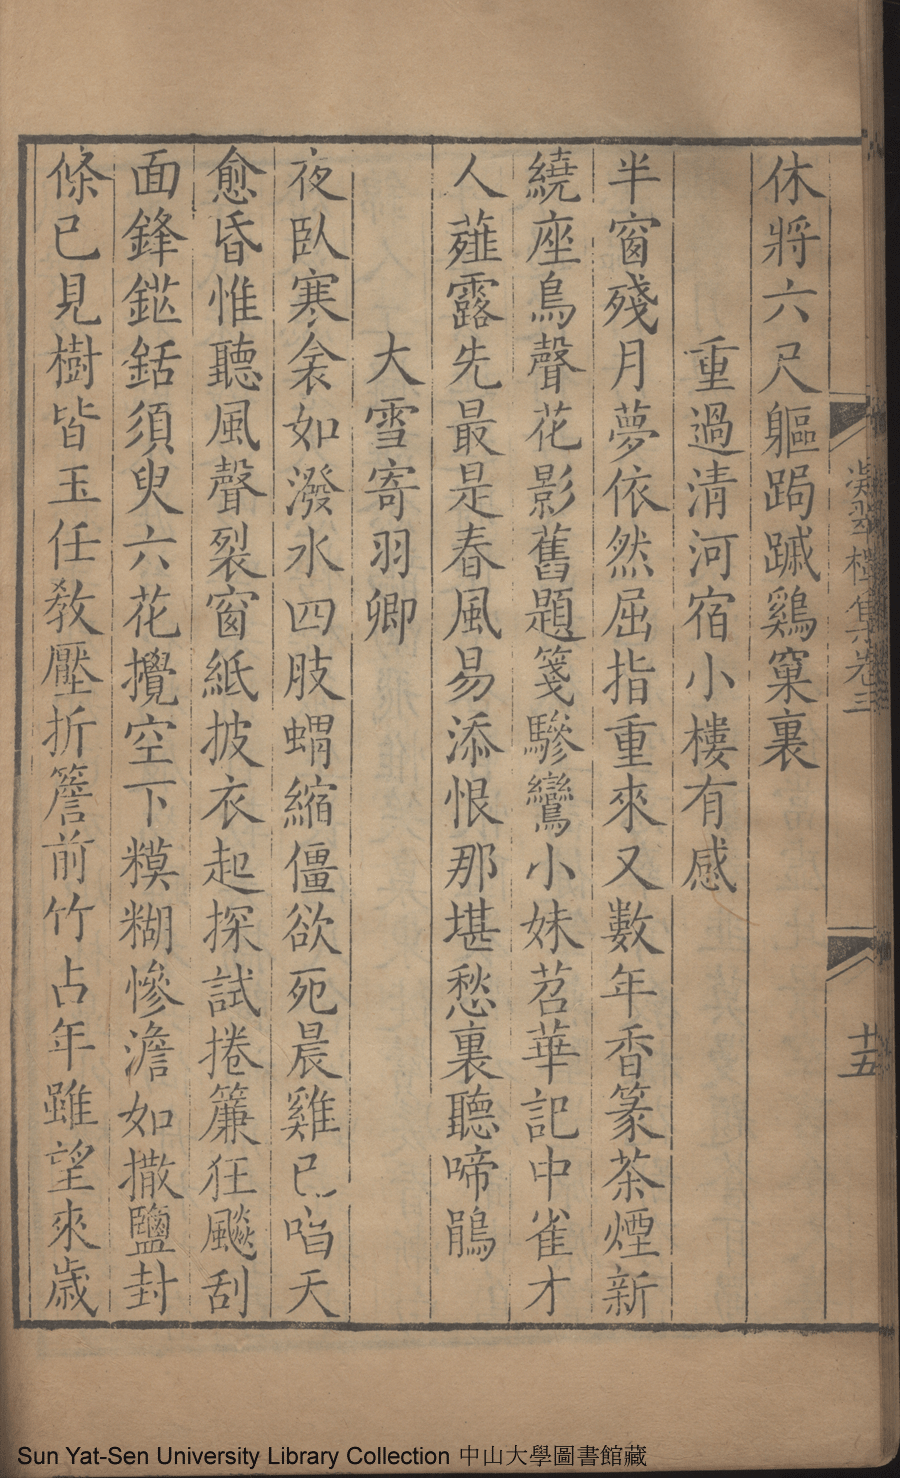 休將六尺軀跼蹐鷄窠裏
重過清河宿小樓有感
半窗殘月夢依然屈指重來又數年香篆茶煙新
繞座鳥聲花影舊題箋驂鸞小妹苕華記中雀才
人薤露先最是春風易添恨那堪愁裏聽啼鵑
大雪寄羽卿
夜臥寒衾如潑水四肢蝟縮僵欲死晨雞已唱天
愈昏惟聽風聲裂窗紙披衣起探試捲簾狂飈刮
面鋒鋩銛須臾六花攪空下糢糊慘澹如撒鹽封
條已見樹皆玉任教壓折簷前竹占年雖望來歲
凝翠樓集卷三
十五
Sun Yat-Sen University Library Collection 中山大學圖書館藏